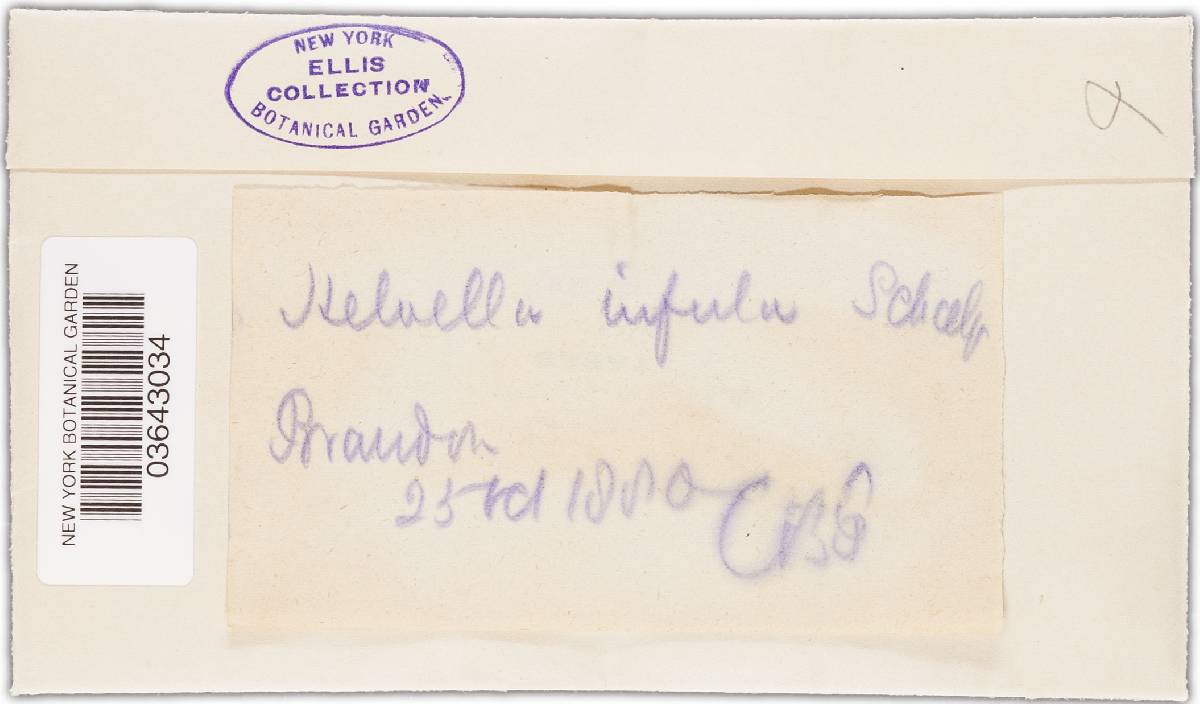 NEW YORK
ELLIS
COLLECTION
BOTANICAL GARDEN
Helvella infula Schaeff
Brandon
25 1880 CBP
NEW YORK BOTANICAL GARDEN
03643034